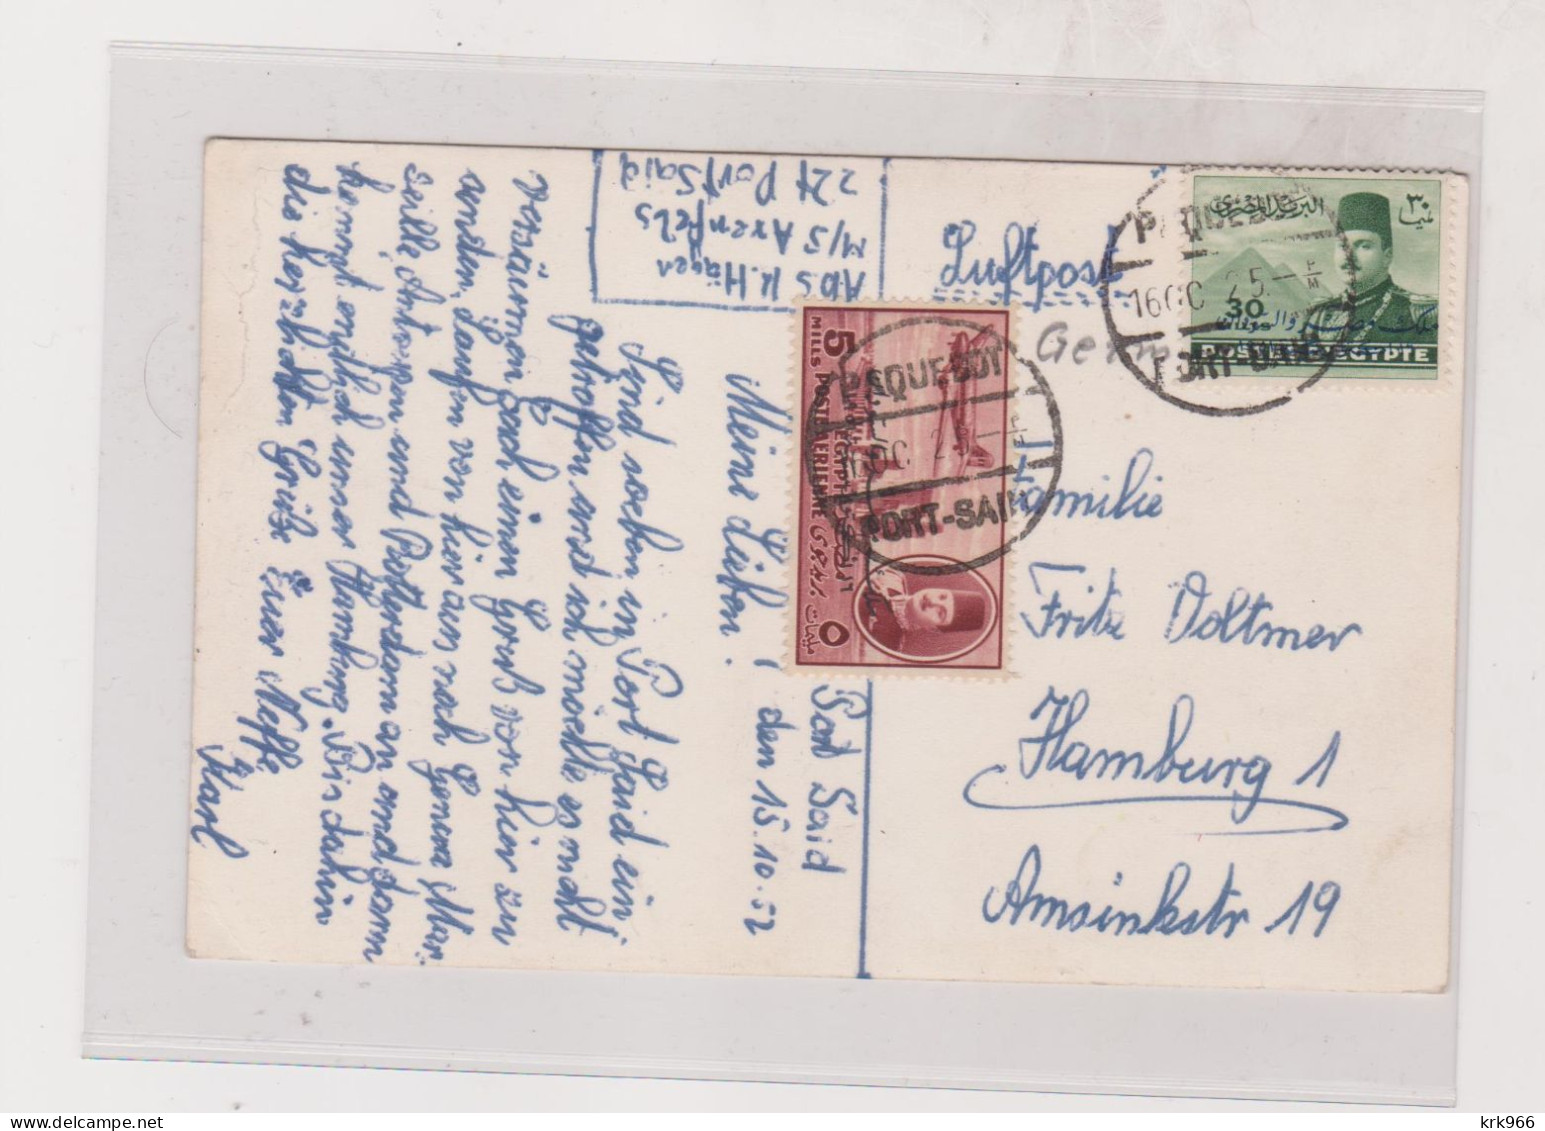 Abs K. Häger
M/S Axenfels
zzt Port Said
Luftpost
Germ
Port Said
den 15.10.52
Meine Lieben!
Sind soeben in Port Said ein
getroffen und ich möchte es nicht
versäumen Euch einen Gruß von hier zu
senden. Laufen von hier aus nach Genua Mar
seille Antwerpen und Rotterdam an und dann
kommt endlich unser Hamburg. Bis dahin
die herzlichsten Grüße Euer Neffe
Karl
Familie
Fritz Voltmer
Hamburg 1
Amsinkstr 19
PAQUEBOT
16 OC 25
PORT-SAID
PAQUEBOT
16 OC
PORT-SAID
البريد المصرى
٣٠
30
POSTES EGYPTE
5
MILLS
POSTE AERIENNE
EGYPTE
مليمات
٥
krk966